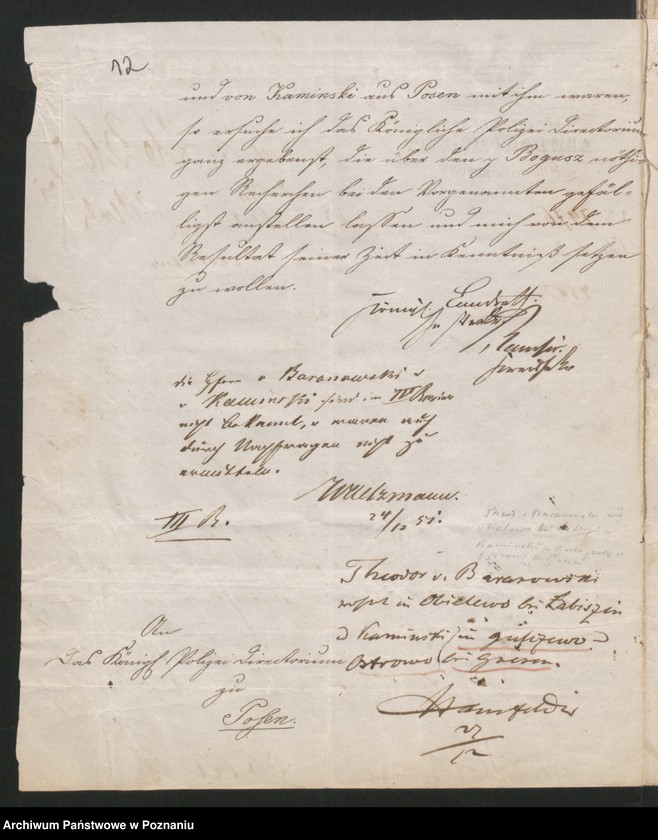 12
und von Kaminski aus Posen mit ihm waren,
so ersuche ich das Königliche Polizei Directorium
ganz ergebenst, die über den p Bogusz nöthi-
gen Recherchen bei den Vorgenannten gefäl-
ligst anstellen lassen und mich von dem
Resultat seiner Zeit in Kenntniß setzen
zu wollen.
Königl. Landrath.
die Herrn v Baranowski u
v Kaminski sind im IV Revier
nicht bekannt, u waren auch
durch Nachfragen nicht zu
ermitteln.
Waltzmann.
24/12 51.
III R.
Theodor v. Baranowski
wohnt in Obielewo bei Labiszin
v Kaminski in
Ostrowo bei Gnesen.
27/12
An
Das Königl Polizei Directorium
zu
Posen.
Archiwum Państwowe w Poznaniu